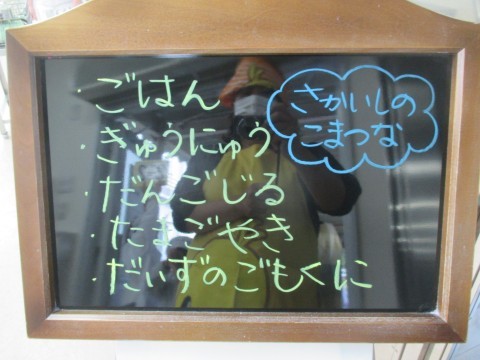 ・ごはん
・ぎゅうにゅう
・だんごじる
・たまごやき
・だいずのごもくに
さかいしの
こまつな